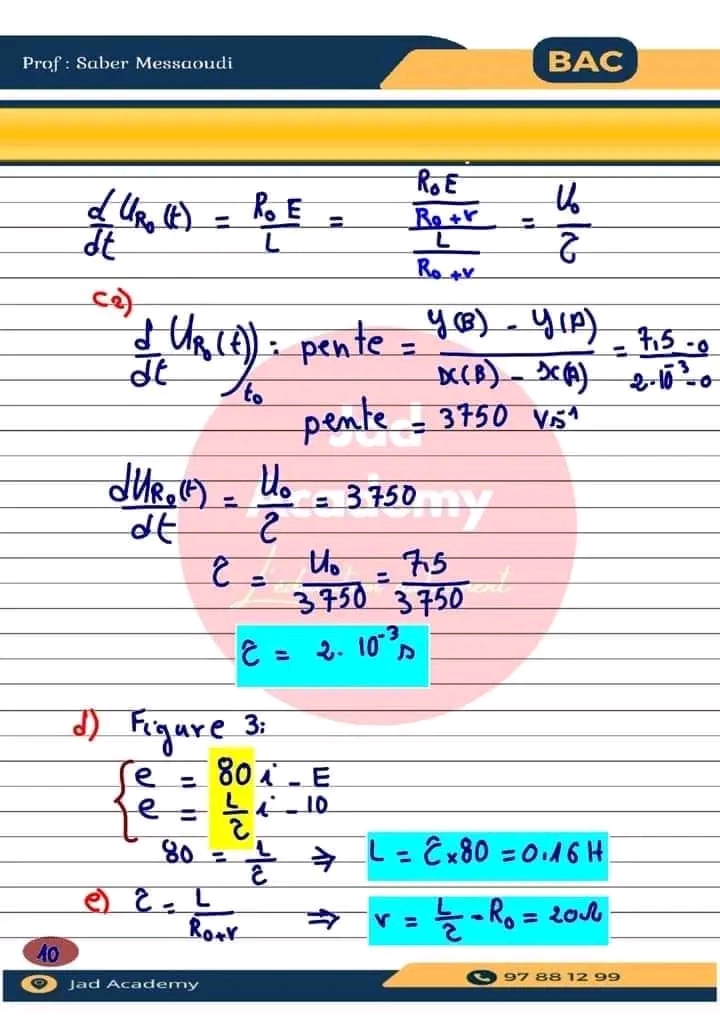 Prof : Saber Messaoudi
BAC
d/dt U_R₀(t) = R₀E/L = (R₀E/(R₀+r))/(L/(R₀+r)) = U₀/τ
c2)
d/dt U_R₀(t))t₀ : pente = (y(B) - y(A))/(x(B) - x(A)) = (7,5 - 0)/(2.10⁻³ - 0)
pente = 3750 Vs⁻¹
dU_R₀(t)/dt = U₀/τ = 3750
τ = U₀/3750 = 7,5/3750
τ = 2. 10⁻³ s
d) Figure 3:
e = 80 i - E
e = L/τ i - 10
80 = L/τ ⇒ L = τ×80 = 0.16 H
e) τ = L/(R₀+r) ⇒ r = L/τ - R₀ = 20Ω
Jad
Academy
10
Jad Academy
97 88 12 99